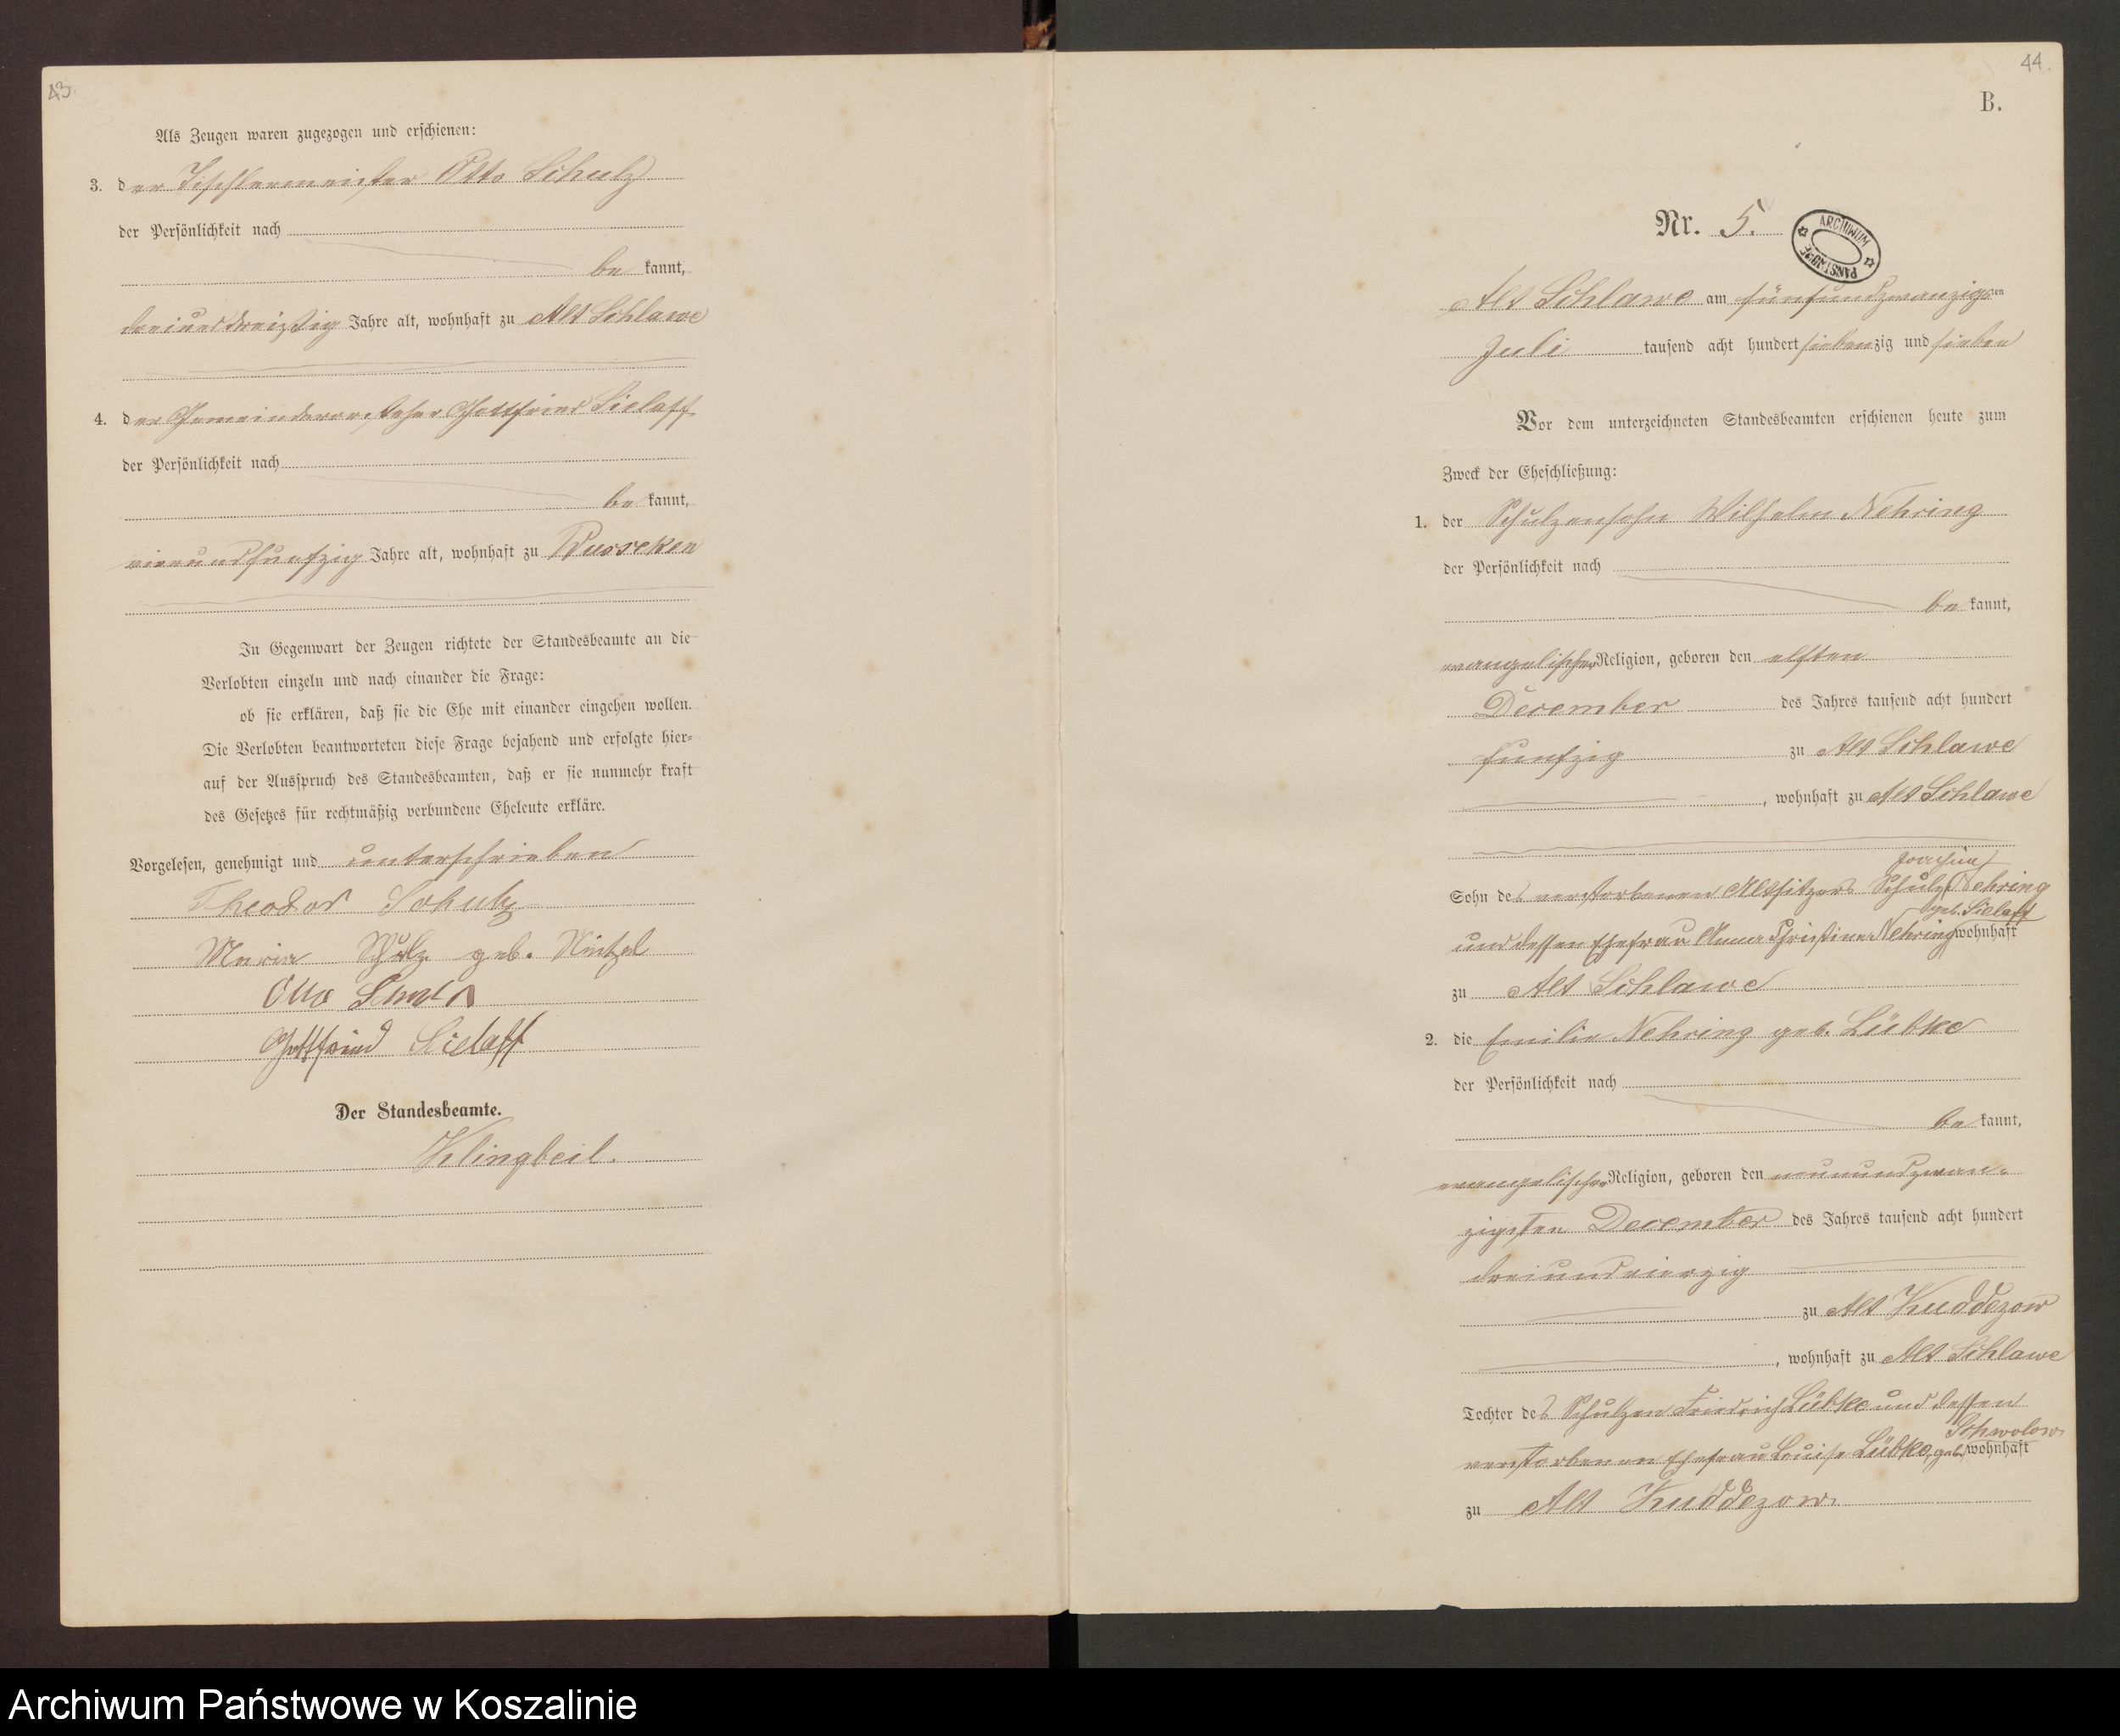 43.
Als Zeugen waren zugezogen und erschienen:
3. der Tischlermeister Otto Schulz
der Persönlichkeit nach
be kannt,
dreiunddreizig Jahre alt, wohnhaft zu Alt Schlawe
4. der Gemeindevorsteher Gottfried Sielaff
der Persönlichkeit nach
be kannt,
vierundfunfzig Jahre alt, wohnhaft zu Wusseken
In Gegenwart der Zeugen richtete der Standesbeamte an die
Verlobten einzeln und nach einander die Frage:
ob sie erklären, daß sie die Ehe mit einander eingehen wollen.
Die Verlobten beantworteten diese Frage bejahend und erfolgte hier=
auf der Ausspruch des Standesbeamten, daß er sie nunmehr kraft
des Gesetzes für rechtmäßig verbundene Eheleute erkläre.
Vorgelesen, genehmigt und unterschrieben
Theodor Schulz
Maria Schulz geb.
Otto Schulz
Gottfried Sielaff
Der Standesbeamte.
Klingbeil.
44.
B.
Nr. 5.
ARCHIWUM PAŃSTWOWE
Alt Schlawe am fünfundzwanzigsten
Juli tausend acht hundert siebenzig und sieben
Vor dem unterzeichneten Standesbeamten erschienen heute zum
Zweck der Eheschließung:
1. der Schulzensohn Wilhelm Nehring
der Persönlichkeit nach
be kannt,
evangelischer Religion, geboren den elften
December des Jahres tausend acht hundert
funfzig zu Alt Schlawe
, wohnhaft zu Alt Schlawe
Joachim
Sohn des verstorbenen Altsitzers Schulz Nehring
geb. Sielaff
und dessen Ehefrau Anna Christine Nehring wohnhaft
zu Alt Schlawe
2. die Emilie Nehring geb. Lübke
der Persönlichkeit nach
be kannt,
evangelischer Religion, geboren den neunundzwan-
zigsten December des Jahres tausend acht hundert
dreiundvierzig
zu Alt Kuddezow
, wohnhaft zu Alt Schlawe
Tochter des Schulzen Friedrich Lübke und dessen
Schwolow
verstorbenen Ehefrau Louise Lübke, geb. wohnhaft
zu Alt Kuddezow.
Archiwum Państwowe w Koszalinie